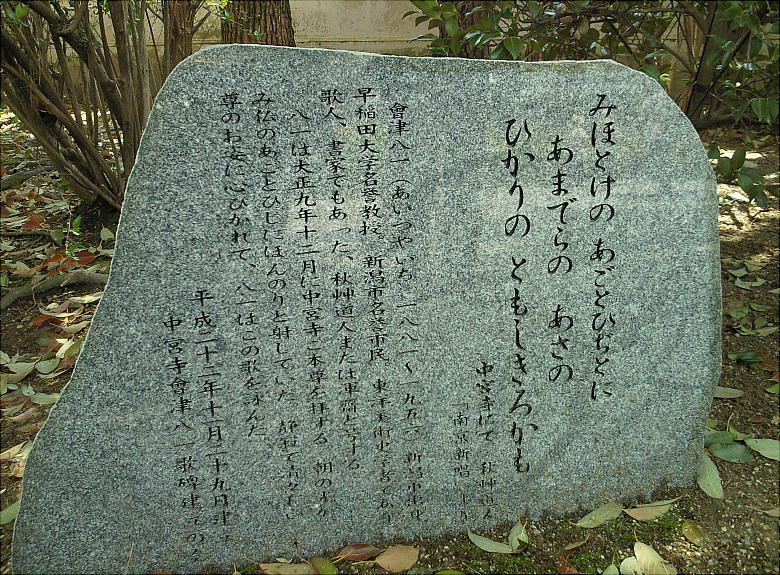 みほとけの あごとひぢとに
あまでらの あさの
ひかりの ともしきろかも
中宮寺にて 秋艸道人
「南京新唱」より
會津八一(あいづやいち 一八八一～一九五六) 新潟市出身
早稲田大学名誉教授。新潟市名誉市民。東洋美術史学者であり
歌人、書家でもあった。秋艸道人または渾齋と号する
八一は大正九年十二月に中宮寺ご本尊を拝する 朝の光り
み仏のあごとひじにほんのりと射していた 静寂で清々しい
尊のお姿に心ひかれて、八一はこの歌を詠んだ。
平成二十二年十一月二十九日建立
中宮寺會津八一歌碑建立の会